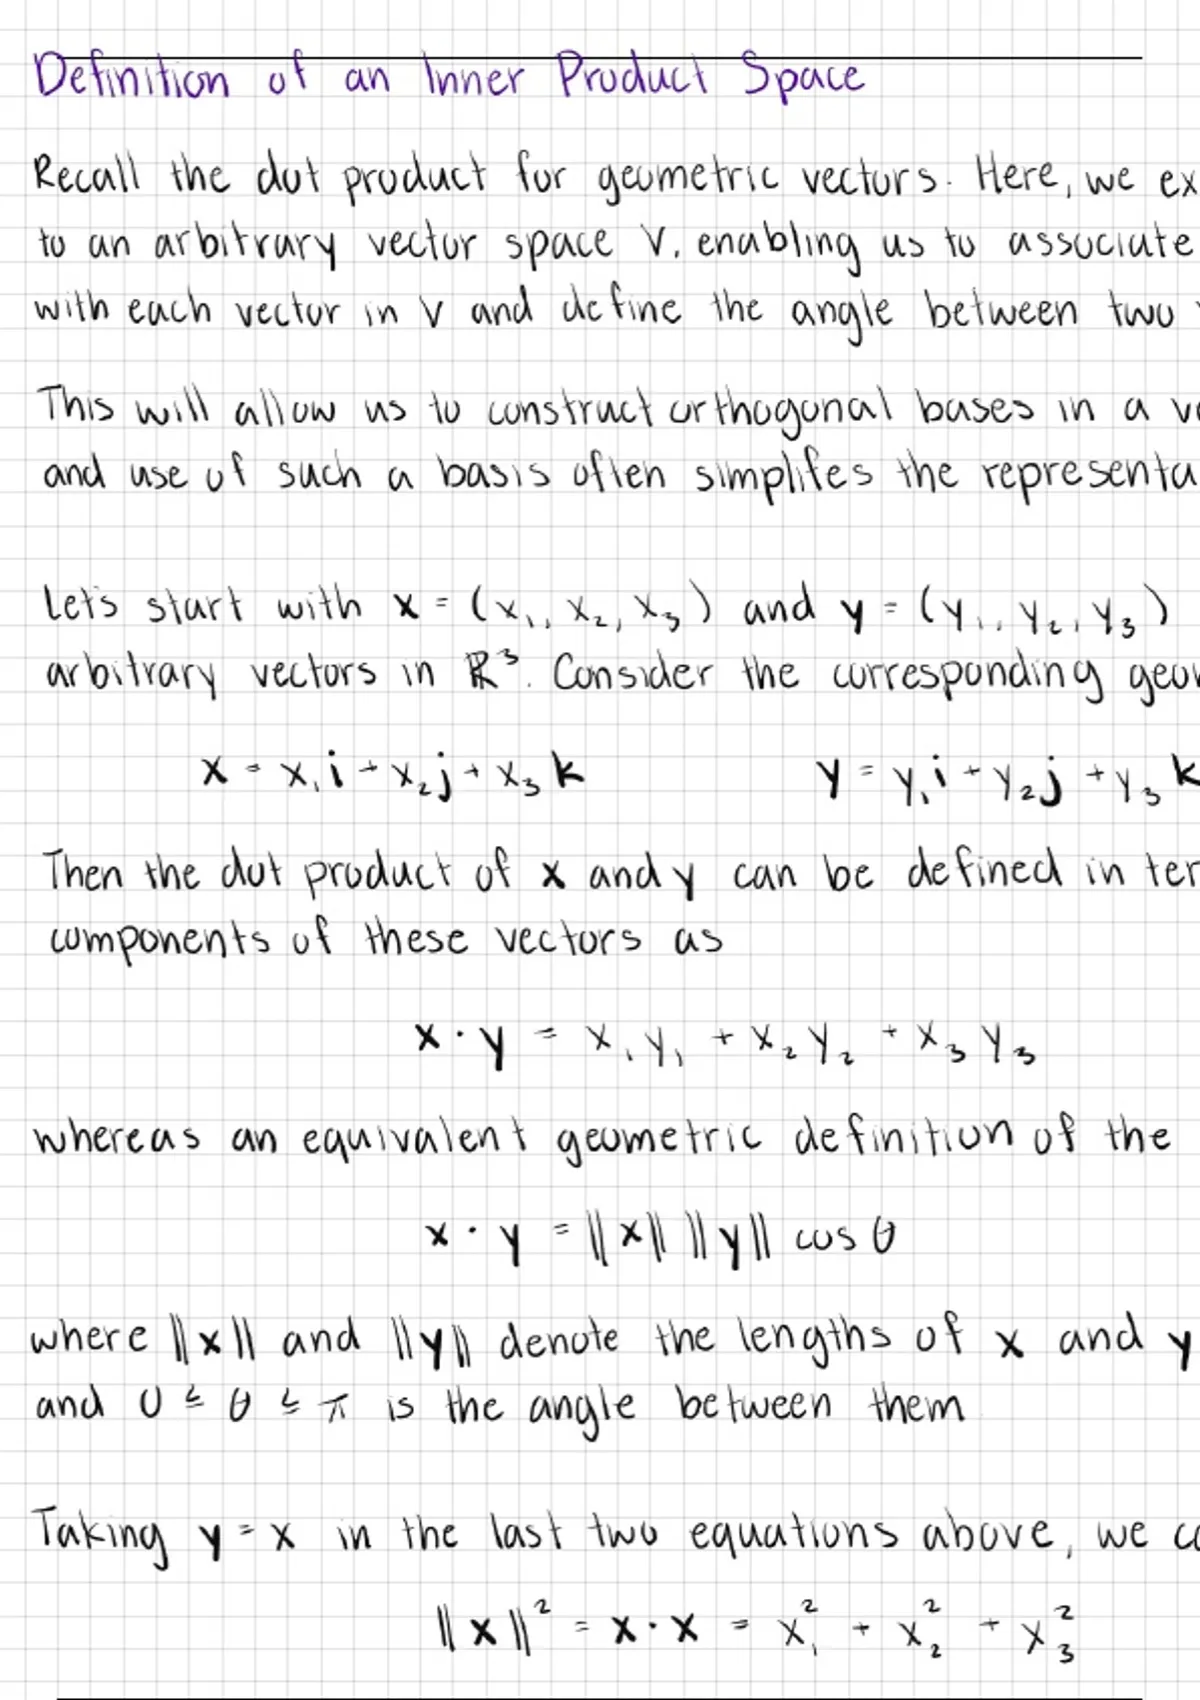 Definition of an Inner Product Space
Recall the dot product for geometric vectors. Here, we ex
to an arbitrary vector space V, enabling us to associate
with each vector in V and define the angle between two
This will allow us to construct orthogonal bases in a ve
and use of such a basis often simplifes the representa
Let's start with x = (x₁, x₂, x₃) and y = (y₁, y₂, y₃)
arbitrary vectors in ℝ³. Consider the corresponding geom
x = x₁i + x₂j + x₃k y = y₁i + y₂j + y₃k
Then the dot product of x and y can be defined in ter
components of these vectors as
x · y = x₁y₁ + x₂y₂ + x₃y₃
whereas an equivalent geometric definition of the
x · y = ||x|| ||y|| cos θ
where ||x|| and ||y|| denote the lengths of x and y
and 0 ≤ θ ≤ π is the angle between them
Taking y = x in the last two equations above, we co
||x||² = x · x = x₁² + x₂² + x₃²